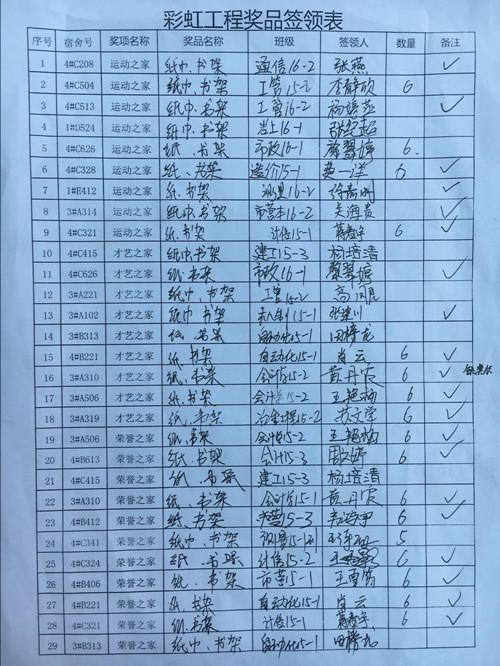 彩虹工程奖品签领表
序号 宿舍号 奖项名称 奖品名称 班级 签领人 数量 备注
1 4#C208 运动之家 纸巾、书架 通信16-2 张燕 ✓
2 4#C504 运动之家 纸巾、书架 工管15-2 李静欣 6
3 4#C513 运动之家 纸巾、书架 工管16-2 ✓
4 1#D524 运动之家 纸巾、书架 岩土16-1
5 4#C626 运动之家 纸、书架 市政16-1 6
6 4#C328 运动之家 纸、书架 造价15-1 6 ✓
7 1#E412 运动之家 纸、书架 ✓
8 3#A314 运动之家 纸巾、书架 市营16-2 关海贵 ✓
9 4#C321 运动之家 纸、书架 计信15-1 6 ✓
10 4#C415 才艺之家 纸巾、书架 建工15-3 杨培清
11 4#C626 才艺之家 纸、书架 市政16-1 ✓
12 3#A221 才艺之家 纸巾、书架 工管15-2
13 3#A102 才艺之家 纸巾、书架 ✓
14 3#B313 才艺之家 纸、书架 自动化15-1
15 4#B221 才艺之家 纸、书架 自动化15-1 肖云 6 ✓
16 3#A310 才艺之家 纸、书架 会计学15-2 黄丹宾 6 ✓
17 3#A506 才艺之家 纸、书架 会计学15-2 王艳梅 6 ✓
18 3#A319 才艺之家 纸、书架 冶金工程15-2 苏文学 6 ✓
19 3#A506 荣誉之家 纸、书架 会计学15-2 王艳梅 6 ✓
20 4#B613 荣誉之家 纸、书架 会计15-3 6 ✓
21 4#C415 荣誉之家 纸、书架 建工15-3 杨培清
22 3#A310 荣誉之家 纸、书架 会计学15-1 黄丹宾 6 ✓
23 4#B412 荣誉之家 纸、书架 市营15-3 6 ✓
24 4#C341 荣誉之家 纸巾、书架 5
25 4#C324 荣誉之家 纸、书架 计信15-2 6 ✓
26 4#B406 荣誉之家 纸、书架 市营15-1 6 ✓
27 4#B221 荣誉之家 纸、书架 自动化15-1 肖云 6 ✓
28 4#C321 荣誉之家 纸、书架 计信15-1 6 ✓
29 3#B313 荣誉之家 纸巾、书架 自动化15-1